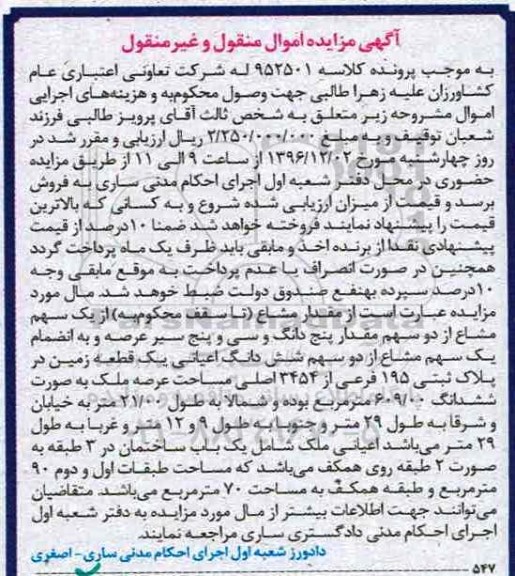 آگهی مزایده اموال منقول و غیرمنقول
به موجب پرونده کلاسه ۹۵۲۵۰۱ له شرکت تعاونی اعتباری عام
کشاورزان علیه زهرا طالبی جهت وصول محکوم‌به و هزینه‌های اجرایی
اموال مشروحه زیر متعلق به شخص ثالث آقای پرویز طالبی فرزند
شعبان توقیف و به مبلغ ۲/۲۵۰/۰۰۰/۰۰۰ ریال ارزیابی و مقرر شد در
روز چهارشنبه مورخ ۱۳۹۶/۱۲/۰۲ از ساعت ۹ الی ۱۱ از طریق مزایده
حضوری در محل دفتر شعبه اول اجرای احکام مدنی ساری به فروش
برسد و قیمت از میزان ارزیابی شده شروع و به کسانی که بالاترین
قیمت را پیشنهاد نمایند فروخته خواهد شد ضمنا ۱۰درصد از قیمت
پیشنهادی نقدا از برنده اخذ و مابقی باید ظرف یک ماه پرداخت گردد
همچنین در صورت انصراف یا عدم پرداخت به موقع مابقی وجه
۱۰درصد سپرده بهنفع صندوق دولت ضبط خواهد شد. مال مورد
مزایده عبارت است از مقدار مشاع (تا سقف محکوم‌به) از یک سهم
مشاع از دو سهم مقدار پنج دانگ و سی و پنج سیر عرصه و به انضمام
یک سهم مشاع از دو سهم شش دانگ اعیانی یک قطعه زمین در
پلاک ثبتی ۱۹۵ فرعی از ۳۴۵۴ اصلی مساحت عرصه ملک به صورت
ششدانگ ۶۰۹/۰۰ مترمربع بوده و شمالا به طول ۲۱/۰۰ متر به خیابان
و شرقا به طول ۲۹ متر و جنوبا به طول ۹ و ۱۲ متر و غربا به طول
۲۹ متر می‌باشد اعیانی ملک شامل یک باب ساختمان در ۳ طبقه به
صورت ۲ طبقه روی همکف می‌باشد که مساحت طبقات اول و دوم ۹۰
مترمربع و طبقه همکف به مساحت ۷۰ مترمربع می‌باشد. متقاضیان
می‌توانند جهت اطلاعات بیشتر از مال مورد مزایده به دفتر شعبه اول
اجرای احکام مدنی دادگستری ساری مراجعه نمایند.
دادورز شعبه اول اجرای احکام مدنی ساری- اصغری
۵۴۷